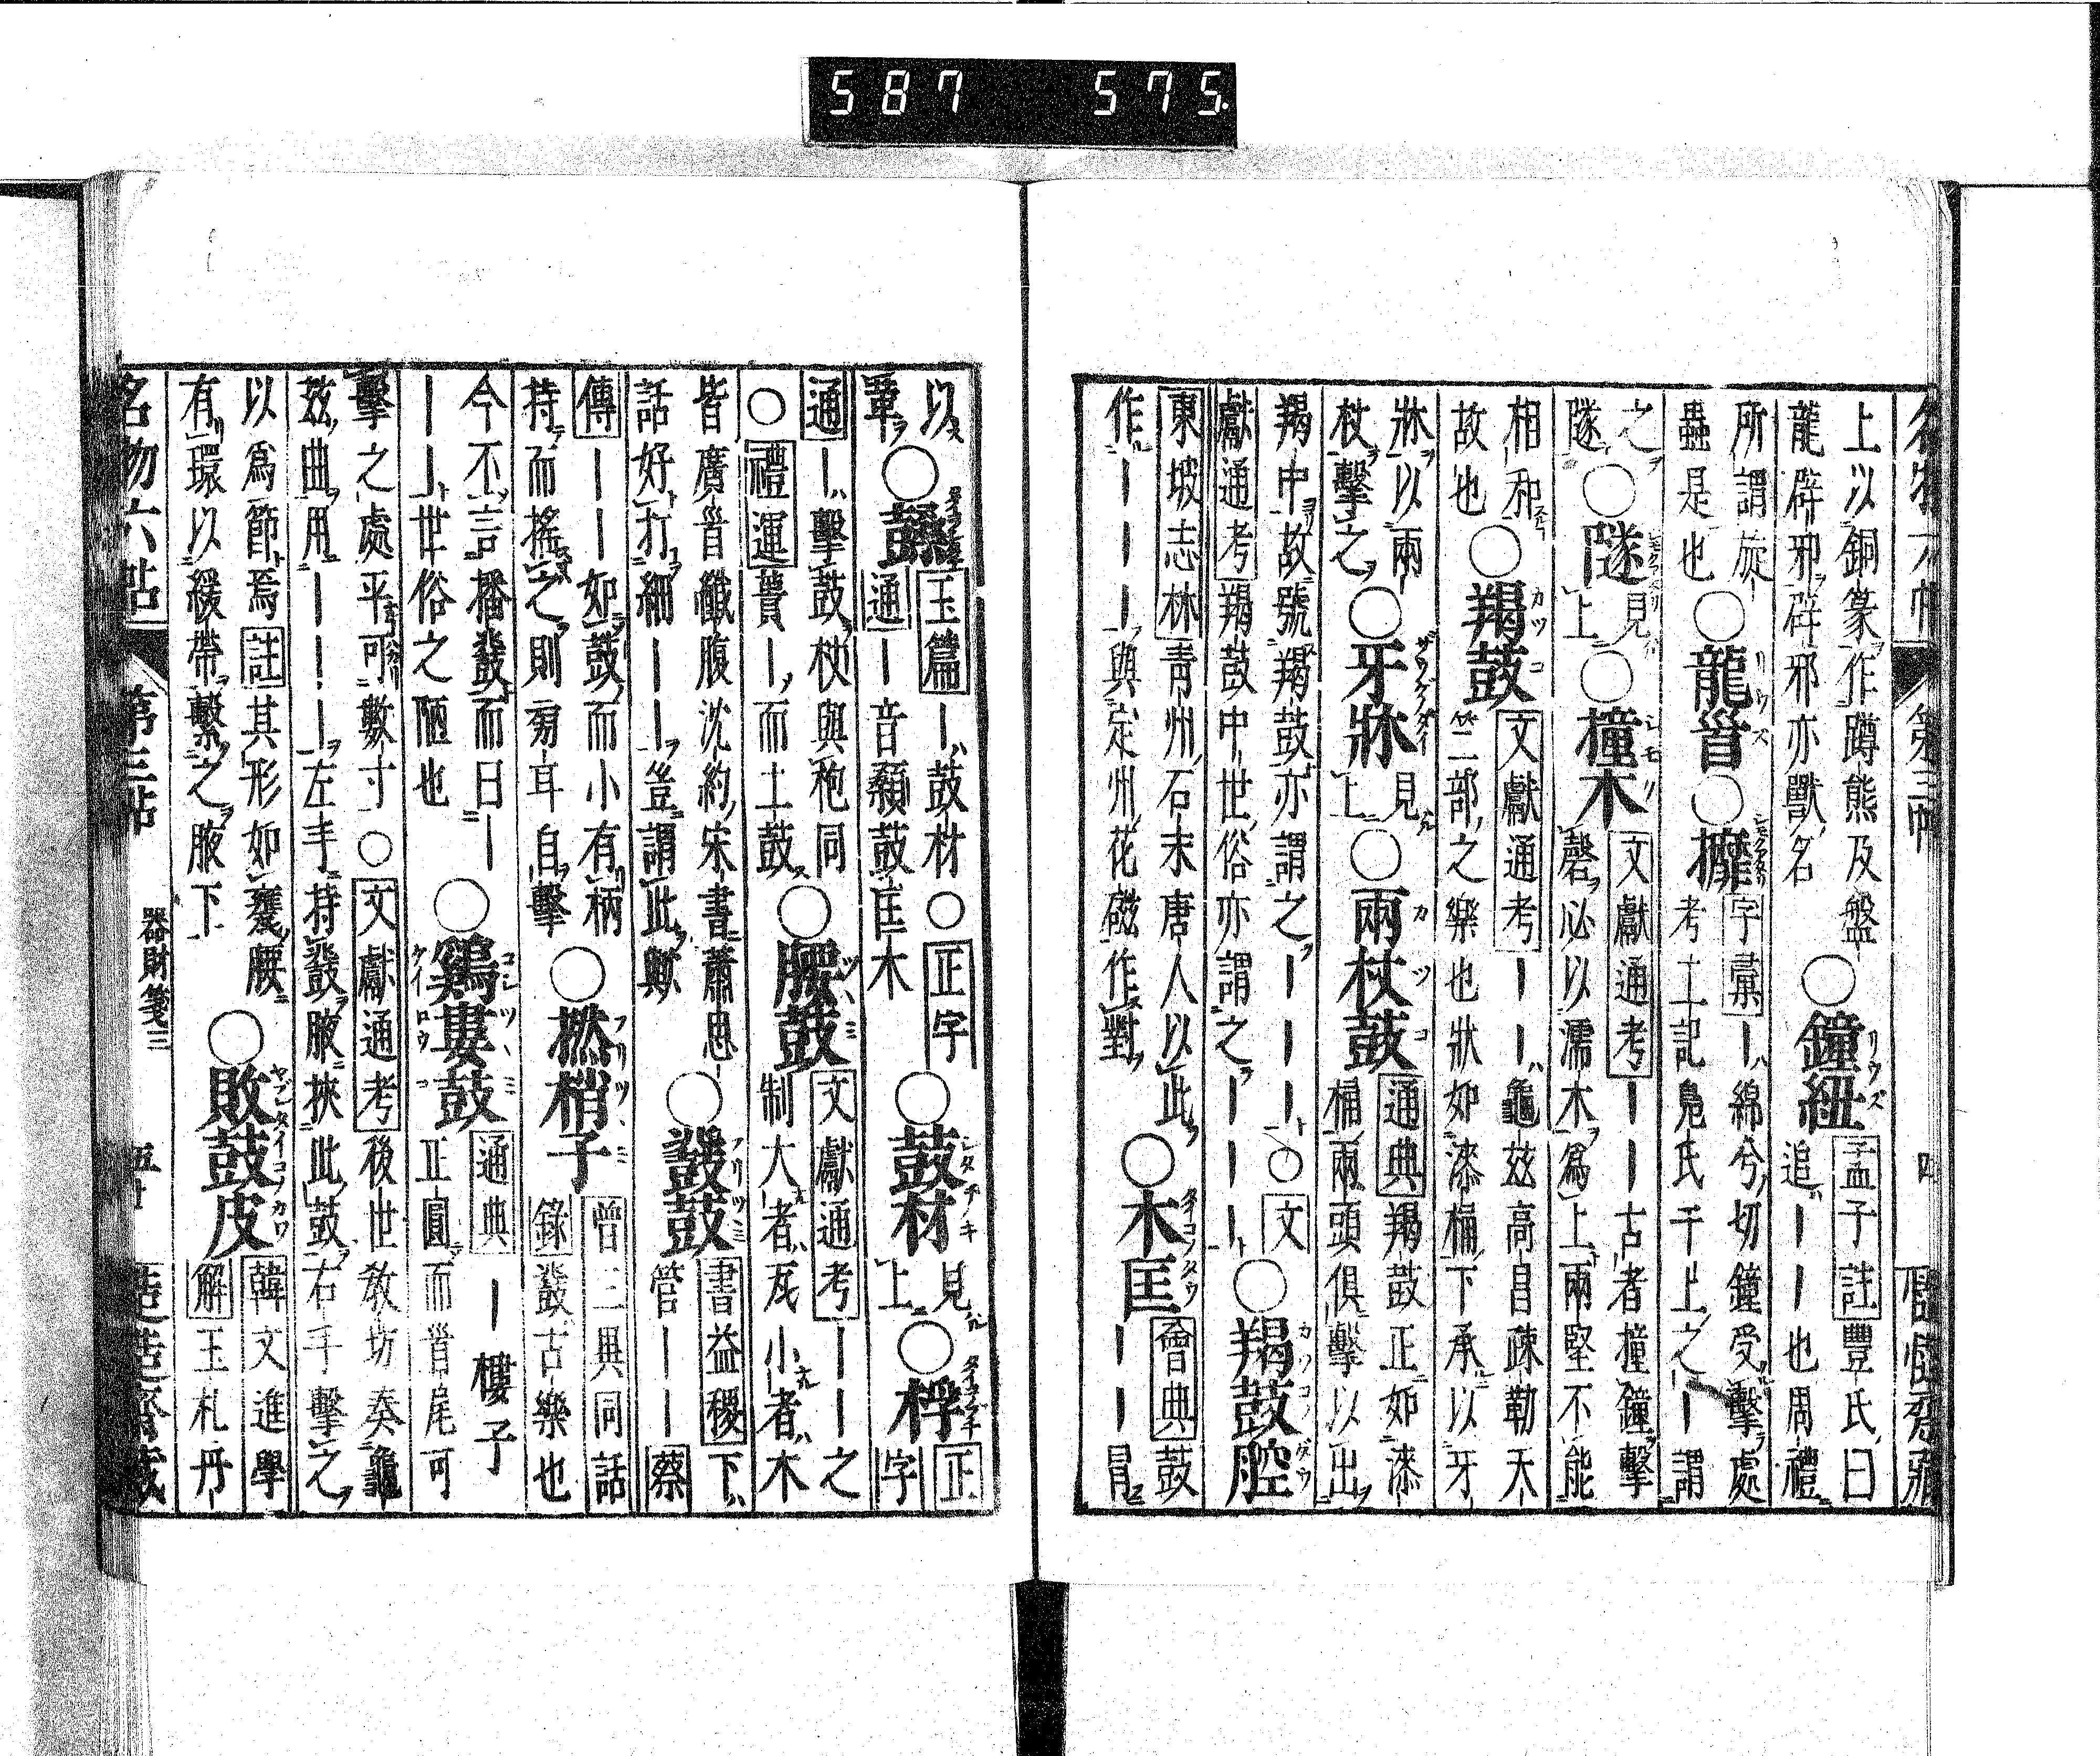 587 575
上以銅篆作蹲熊及盤
龍辟邪辟邪亦獸名
○鐘紐 リウズ
孟子註豐氏曰
追｜｜也周禮
所謂旋
蟲是也
○龍首 リウズ ○攠
字彙｜綿兮切鐘受擊處
考工記鳧氏于上之｜謂
之
隧
○隧
見
上
○撞木 シモク
文獻通考｜｜古者撞鐘擊
磬必以濡木爲上兩堅不能
相和
故也
○羯鼓 カツコ
文獻通考｜｜龜茲高昌疎勒天
竺二部之樂也狀如漆桶下承以牙
牀以兩
杖擊之
○牙牀
見
上
○兩杖鼓 カツコ
通典羯鼓正如漆
桶兩頭俱擊以出
羯中故號羯鼓亦謂之｜｜｜○文
獻通考羯鼓中世俗亦謂之｜｜｜
○羯鼓腔
東坡志林青州石末唐人以此
作｜｜｜｜與定州花磁作對
○木匡
會典鼓
｜｜冒
以
革
玉篇｜鼓材○正字
通｜音顙鼓匡木
○鼓材
見
上
○桴
正
字
通｜擊鼓杖與枹同
○禮運蕢｜而土鼓
○腰鼓 ツヽミ
文獻通考｜｜之
制大者瓦小者木
皆廣首纖腹沈約宋書蕭思
話好打細｜｜豈謂此歟
○鼗鼓 フリツヽミ
書益稷下
管｜｜蔡
傳｜｜如鼓而小有柄
持而搖之則旁耳自擊
○橪梢子 フリツヽミ
曾三異同話
錄鼗古樂也
今不言播鼗而曰｜
｜｜世俗之陋也
○鷄婁鼓 ケイロウコ
通典｜樓子
正圓而首尾可
擊之處平可數寸○文獻通考後世教坊奏龜
茲曲用｜｜｜左手持鼗腋挾此鼓右手擊之
以爲節焉註其形如甕腰
有環以緩帶繫之腋下
○敗鼓皮 ヤブレタイコノカワ
韓文進學
解玉札丹
名物六帖 第三帖 器財箋三